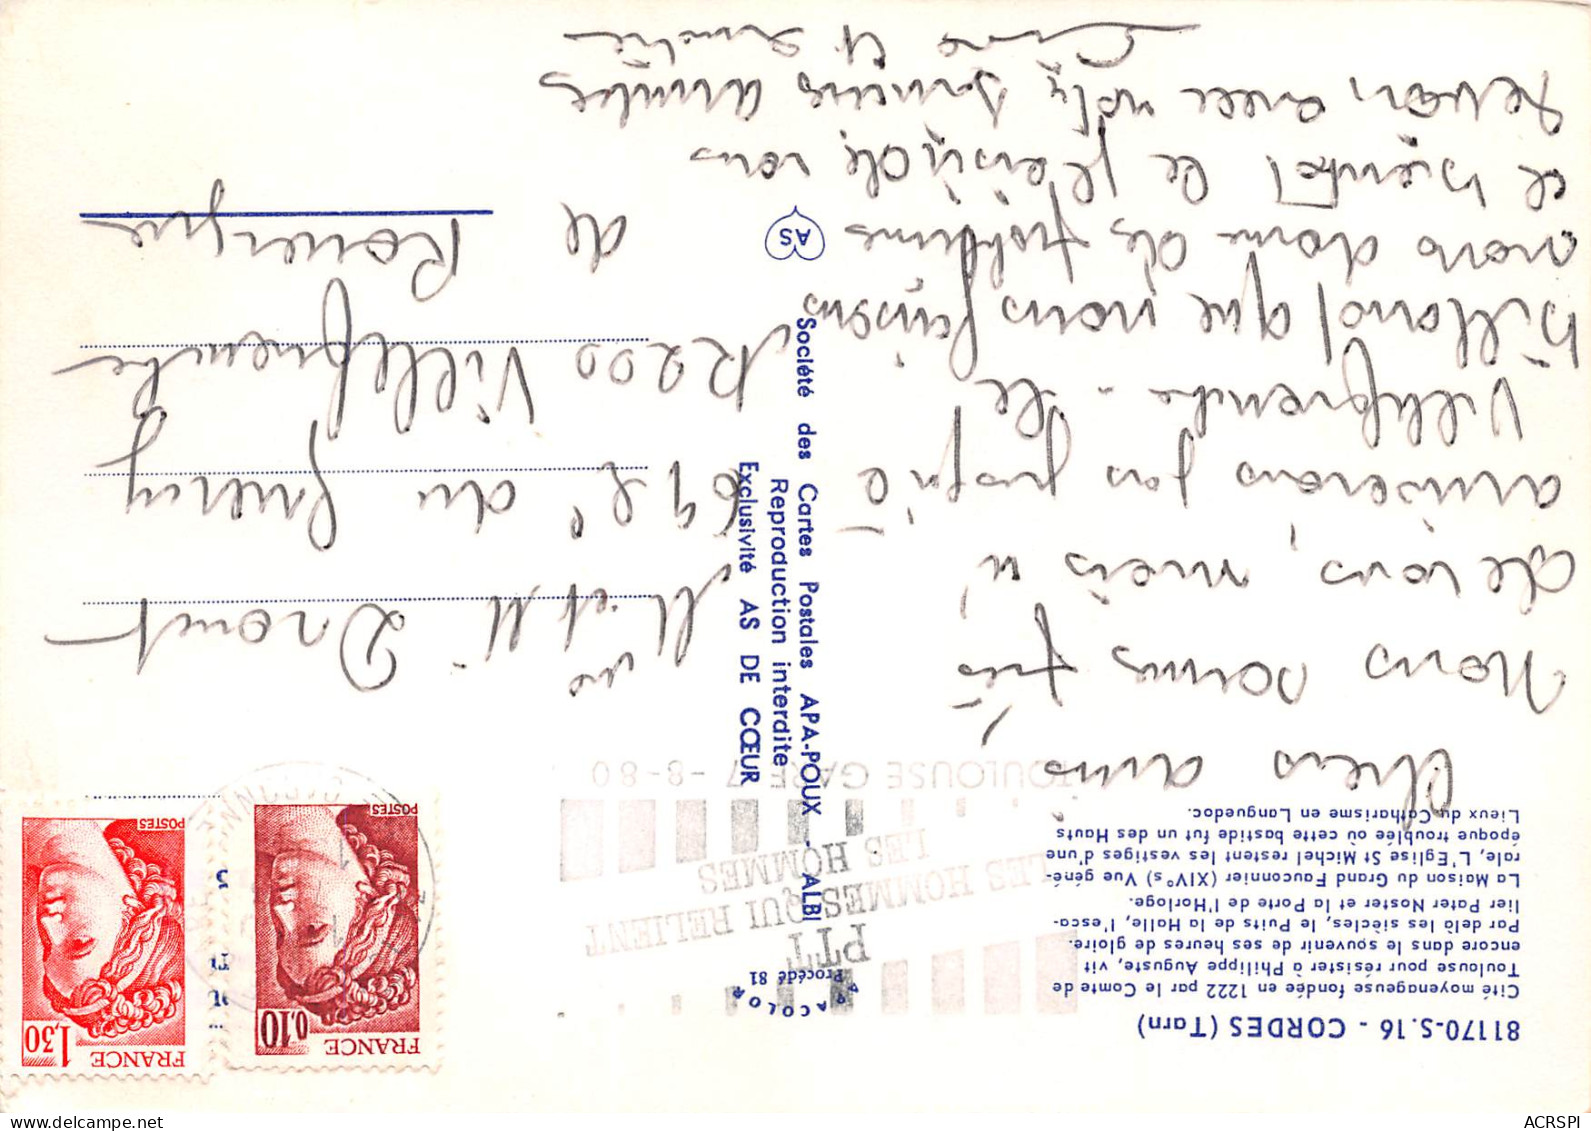 81170-S.16 - CORDES (Tarn)
Cité moyenageuse fondée en 1222 par le Comte de
Toulouse pour résister à Philippe Auguste, vit
encore dans le souvenir de ses heures de gloire.
Par delà les siècles, le Puits de la Halle, l'esca-
lier Pater Noster et la Porte de l'Horloge.
La Maison du Grand Fauconnier (XIV°s) Vue géné-
rale, L'Eglise St Michel restent les vestiges d'une
époque troublée où cette bastide fut un des Hauts
Lieux du Catharisme en Languedoc.
Chers amis
Nous sommes près
de vous, mais n'
arriverons pas jusqu'à
Villefranche - le
billard que nous faisons
nous donne des problèmes
a bientôt le plaisir de vous
revoir, avec nos bonnes amitiés
MACOLOR
Procédé 81
PTT
LES HOMMES QUI RELIENT
LES HOMMES
TOULOUSE GARE 7-8-80
Société des Cartes Postales APA-POUX - ALBI
Reproduction interdite
Exclusivité AS DE CŒUR
AS
FRANCE
0,10
POSTES
FRANCE
1,30
POSTES
M. et Me Drouet
69 du Quercy
12200 Villefranche
de
Rouergue
ACRSPI